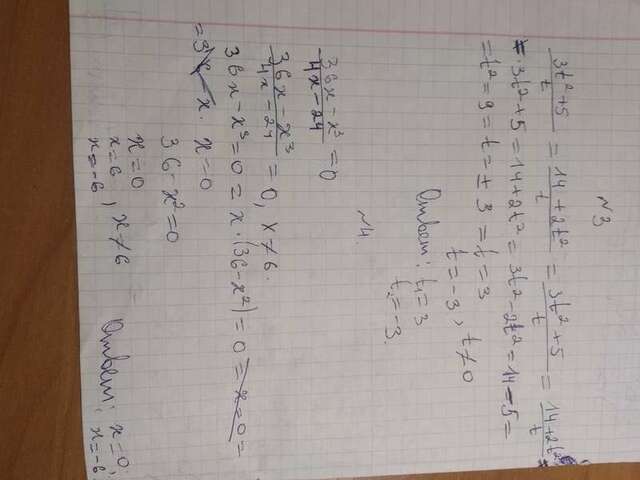 N3
(3t²+5)/t = (14+2t²)/t = (3t²+5)/t = (14+2t²)/t =
= 3t²+5=14+2t² = 3t²-2t²=14-5=
= t²=9 = t=±3 = t=3
t=-3, t≠0
Ответ: t₁=3
t₂=-3.
N4.
(36x-x³)/(4x-24)=0
(36x-x³)/(4x-24)=0, x≠6.
36x-x³=0 = x·(36-x²)=0 = x=0 =
= x. x=0
36-x²=0
x=0
x=6, x≠6
x=-6
Ответ: x=0,
x=-6